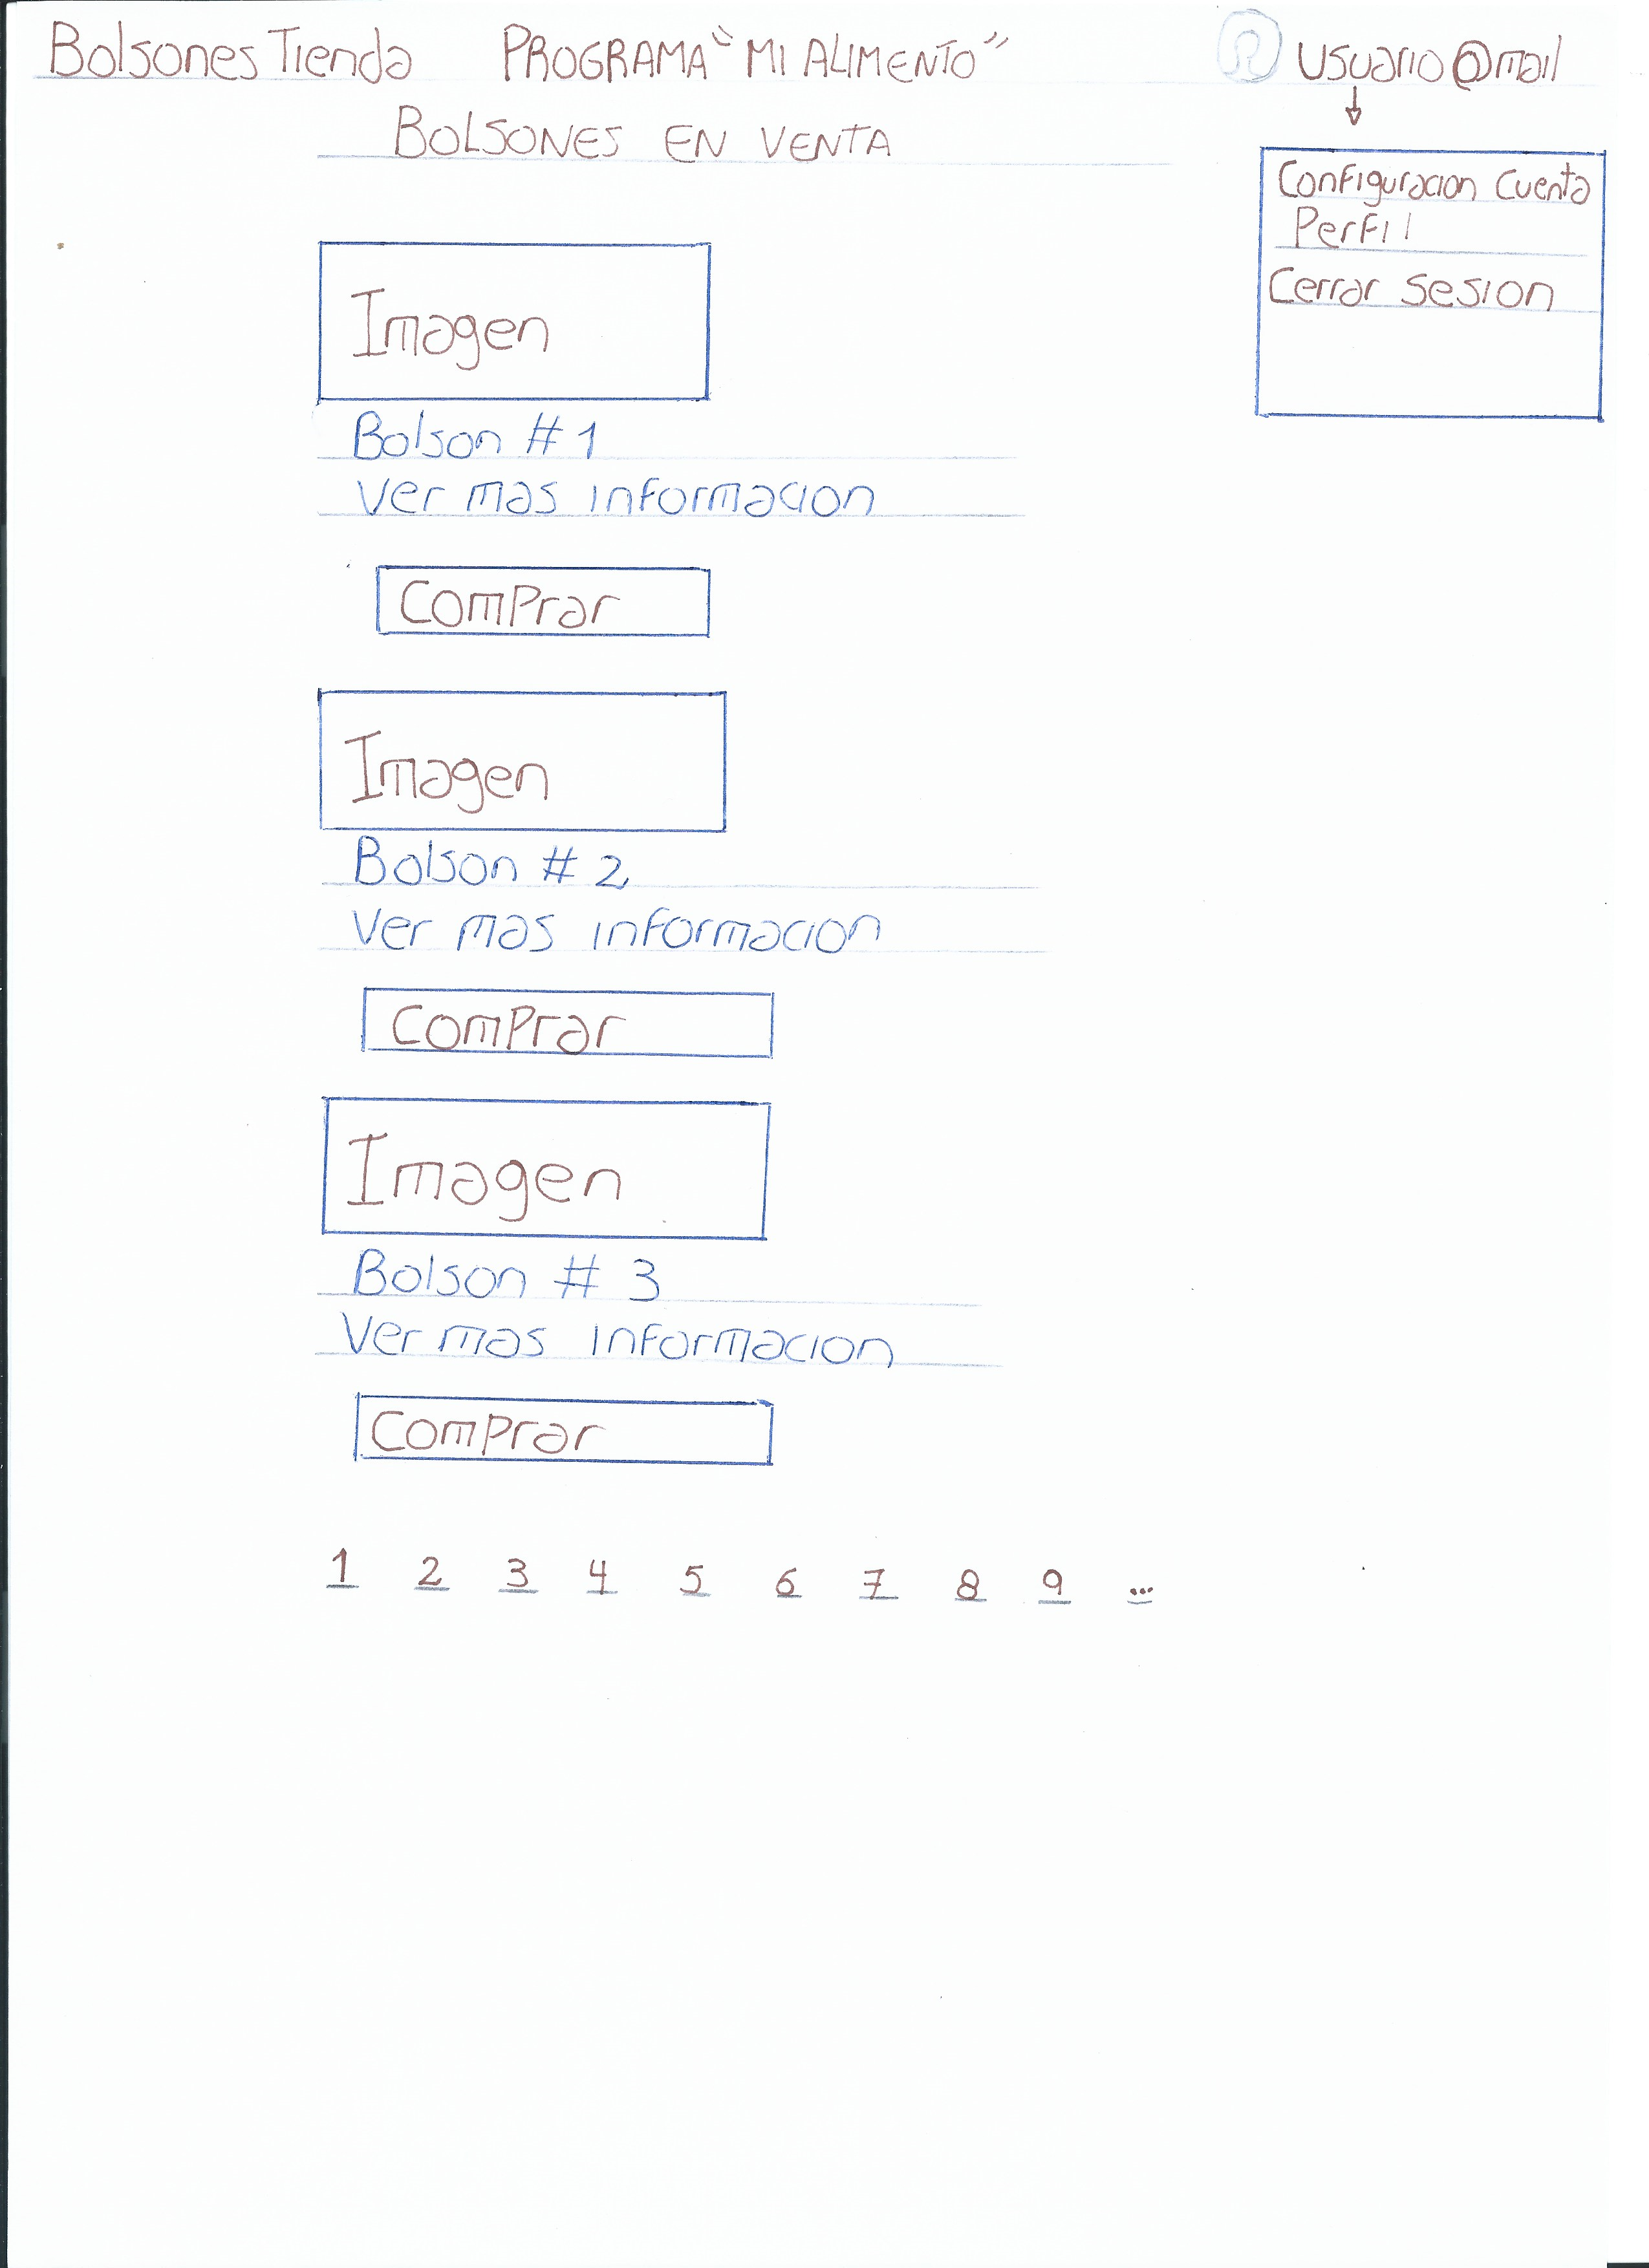 Bolsones Tienda PROGRAMA "MI ALIMENTO" usuario@mail
BOLSONES EN VENTA
Configuracion Cuenta
Perfil
Cerrar sesion
Imagen
Bolson # 1
Ver mas informacion
Comprar
Imagen
Bolson # 2
Ver mas informacion
Comprar
Imagen
Bolson # 3
Ver mas informacion
Comprar
1 2 3 4 5 6 7 8 9 ...